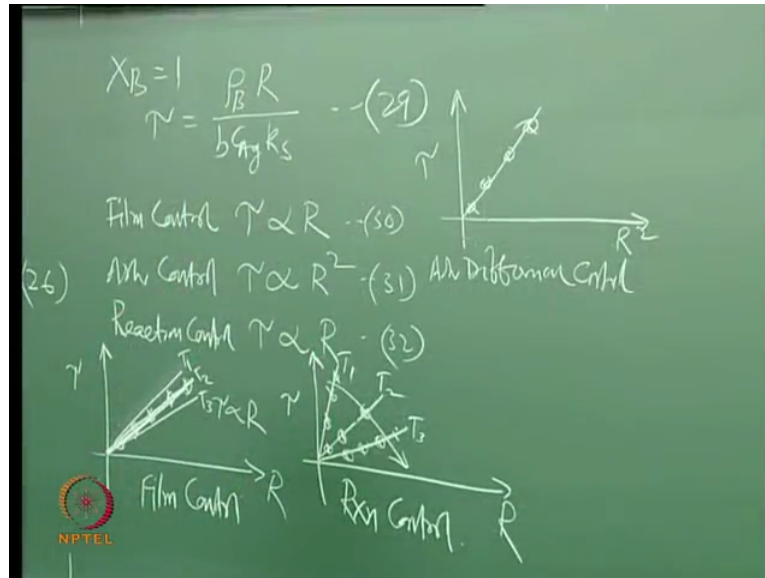 X_B = 1
τ = ρ_B R / b C_Ag k_s --(29)
τ
R²
Film Control τ ∝ R --(30)
(26) Ash Control τ ∝ R² -(31) Ash Diffusional Control
Reaction Control τ ∝ R -(32)
τ T₁ T₂ T₃ τ∝R R
Film Control
τ T₁ T₂ T₃ R
Rxn Control.
NPTEL